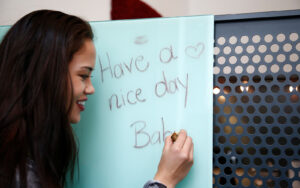 Have a ♡
nice day
Bab